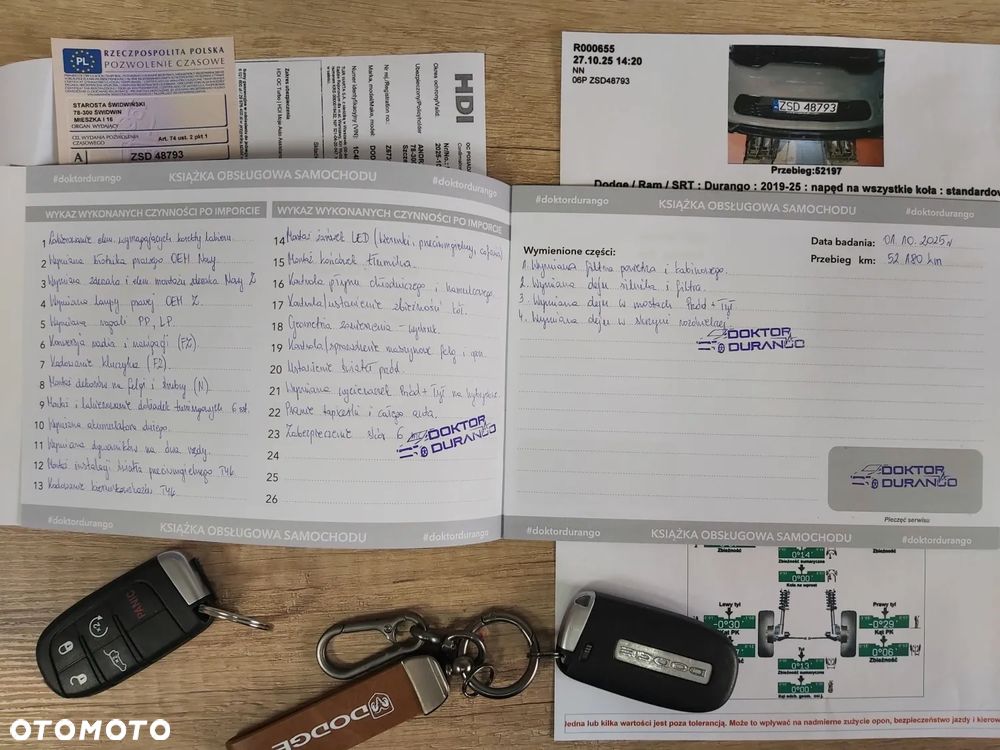 RZECZPOSPOLITA POLSKA
PL
POZWOLENIE CZASOWE
STAROSTA ŚWIDWIŃSKI
78-300 ŚWIDWIN
MIESZKA I 16
ORGAN WYDAJĄCY
CEL WYDANIA POZWOLENIA CZASOWEGO
Art. 74 ust. 2 pkt 1
A
ZSD 48793
HDI
Okres ochrony/Valid:
Ubezpieczony/Policyholder
Nr rej./Registration no.:
Marka, model/Make, model:
Numer identyfikacyjny (VIN):
Zakres ubezpieczenia
R000655
27.10.25 14:20
NN
06P ZSD48793
ZSD 48793
Przebieg:52197
Dodge / Ram / SRT : Durango : 2019-25 : napęd na wszystkie koła : standardow
#doktordurango
KSIĄŻKA OBSŁUGOWA SAMOCHODU
#doktordurango
WYKAZ WYKONANYCH CZYNNOŚCI PO IMPORCIE
1 Lakierowanie elem. wymagających korekty lakieru
2 Wymiana błotnika prawego OEM Nowy
3 Wymiana zderzaka i elem. montażu zderzaka Nowy Z
4 Wymiana lampy prawej OEM Z.
5 Wymiana nogali PP, LP.
6 Konwersja radia i nawigacji (FZ)
7 Kodowanie kluczyka (FZ).
8 Montaż dekorów na felgi i śruby (N)
9 Montaż i lakierowanie dokładek tuningowych 6 szt.
10 Wymiana akumulatora dużego.
11 Wymiana dywaników na dwa rzędy.
12 Montaż instalacji światła przeciwmgielnego TYŁ
13 Kodowanie kierunkowskazów TYŁ.
WYKAZ WYKONANYCH CZYNNOŚCI PO IMPORCIE
14 Montaż żarówek LED (kierunki, przeciwmgielny, cofania)
15 Montaż końcówek tłumika.
16 Kontrola płynu chłodniczego i hamulcowego.
17 Kontrola/ustawienie zbieżności kół.
18 Geometria zawieszenia - wydruk.
19 Kontrola/sprawdzenie maszynowe felg i opon.
20 Ustawienie świateł przód.
21 Wymiana wycieraczek Przód + Tył na hybrydowe.
22 Pranie tapicerki i całego auta.
23 Zabezpieczenie skór 6
24
25
26
DOKTOR DURANGO
#doktordurango
KSIĄŻKA OBSŁUGOWA SAMOCHODU
#doktordurango
#doktordurango
KSIĄŻKA OBSŁUGOWA SAMOCHODU
#doktordurango
Data badania: 01.10.2025r
Przebieg km: 52 180 km
Wymienione części:
1. Wymiana filtra powietrza i kabinowego.
2. Wymiana oleju silnika i filtra.
3. Wymiana oleju w mostach Przód + Tył
4. Wymiana oleju w skrzyni rozdzielczej
DOKTOR DURANGO
DOKTOR DURANGO
Pieczęć serwisu
#doktordurango
KSIĄŻKA OBSŁUGOWA SAMOCHODU
#doktordurango
Zbieżność
Zbieżność
0°14'
Zbieżność sumaryczna
0°00'
Koła na wprost
Lewy tył
Prawy tył
-0°30'
-0°29'
Kąt PK
Kąt PK
0°06'
Zbieżność
0°13'
Zbieżność sumaryczna
0°00'
Jedna lub kilka wartości jest poza tolerancją. Może to wpływać na nadmierne zużycie opon, bezpieczeństwo jazdy i kierow
PANIC
x2
DODGE
DODGE
OTOMOTO